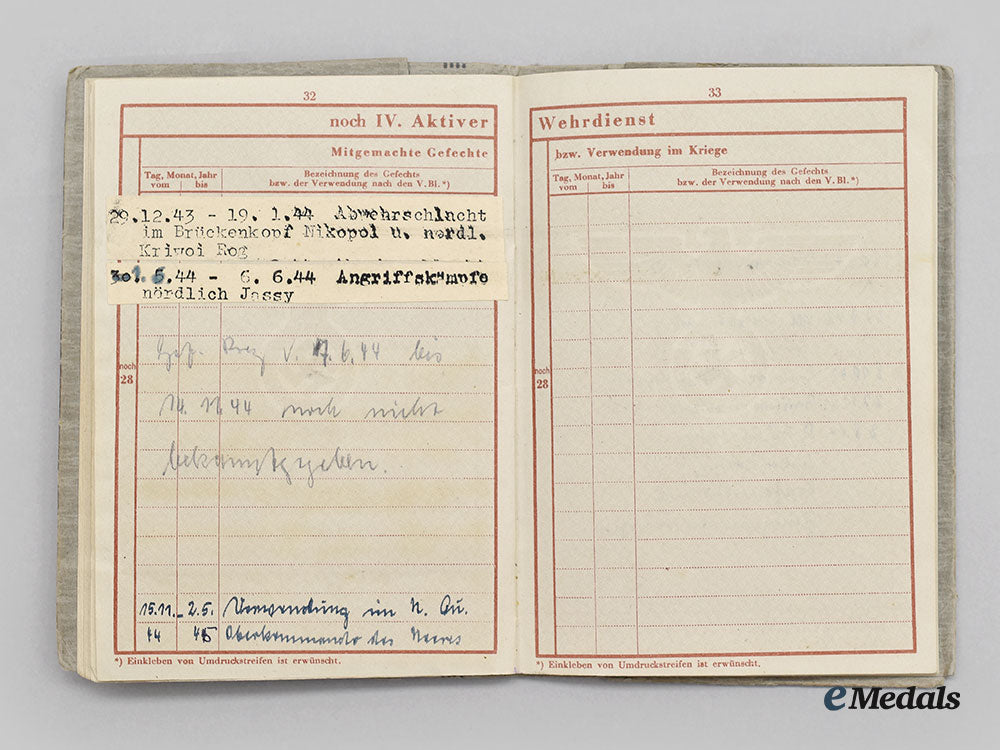 32
noch IV. Aktiver
Mitgemachte Gefechte
Tag, Monat, Jahr
vom bis
Bezeichnung des Gefechts
bzw. der Verwendung nach den V.Bl.*)
29.12.43 - 19. 1.44 Abwehrschlacht
im Brückenkopf Nikopol u. nördl.
Krivoi Rog
30.5.44 - 6. 6.44 Angriffskämpfe
nördlich Jassy
v. 7.6.44 bis
noch
28
14.11.44 noch nicht
bekanntgegeben.
15.11. - 2.5. Verwendung im H. Qu.
44 45 Oberkommando des Heeres
*) Einkleben von Umdruckstreifen ist erwünscht.
33
Wehrdienst
bzw. Verwendung im Kriege
Tag, Monat, Jahr
vom bis
Bezeichnung des Gefechts
bzw. der Verwendung nach den V.Bl.*)
noch
28
*) Einkleben von Umdruckstreifen ist erwünscht.
eMedals